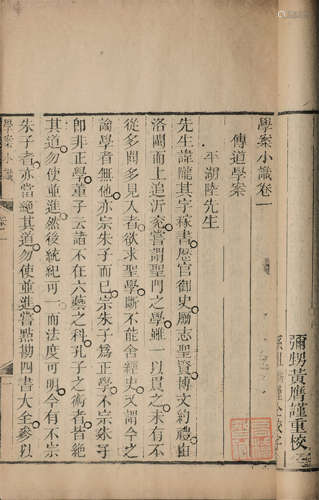 學案小識卷一
傳道學案
平湖陸先生
先生諱隴其字稼書歷官御史勵志聖賢博文約禮由
洛閩而上追沂兗嘗謂聖門之學雖一以貫之未有不
從多聞多見入者欲求聖學斷不能舍經史又謂今之
論學者無他亦宗朱子而已宗朱子為正學不宗朱子
即非正學董子云諸不在六藝之科孔子之術者皆絕
其道勿使並進然後統紀可一而法度可明今有不宗
朱子者亦當絕其道勿使並進嘗點勘四書大全參以
學案小識
卷一
彌甥黃膺謹重校